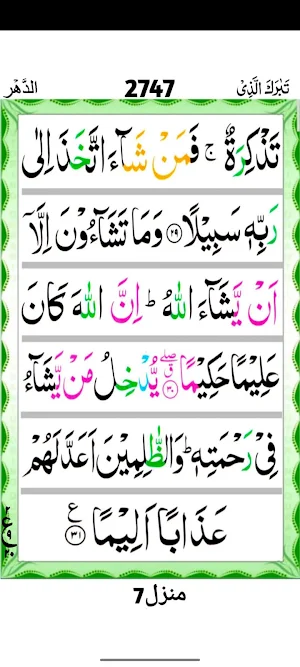 تَبٰرَكَ الَّذِیْ 2747 الدَّهْر
تَذْكِرَةٌ ۚ فَمَنْ شَآءَ اتَّخَذَ اِلٰی
رَبِّهٖ سَبِیْلًا ﴿۲۹﴾ وَمَا تَشَآءُوْنَ اِلَّاۤ
اَنْ یَّشَآءَ اللّٰهُ ؕ اِنَّ اللّٰهَ كَانَ
عَلِیْمًا حَكِیْمًا ﴿۳۰﴾ۗۖ یُّدْخِلُ مَنْ یَّشَآءُ
فِیْ رَحْمَتِهٖ ؕ وَالظّٰلِمِیْنَ اَعَدَّ لَهُمْ
عَذَابًا اَلِیْمًا ﴿۳۱﴾ ع
منزل 7